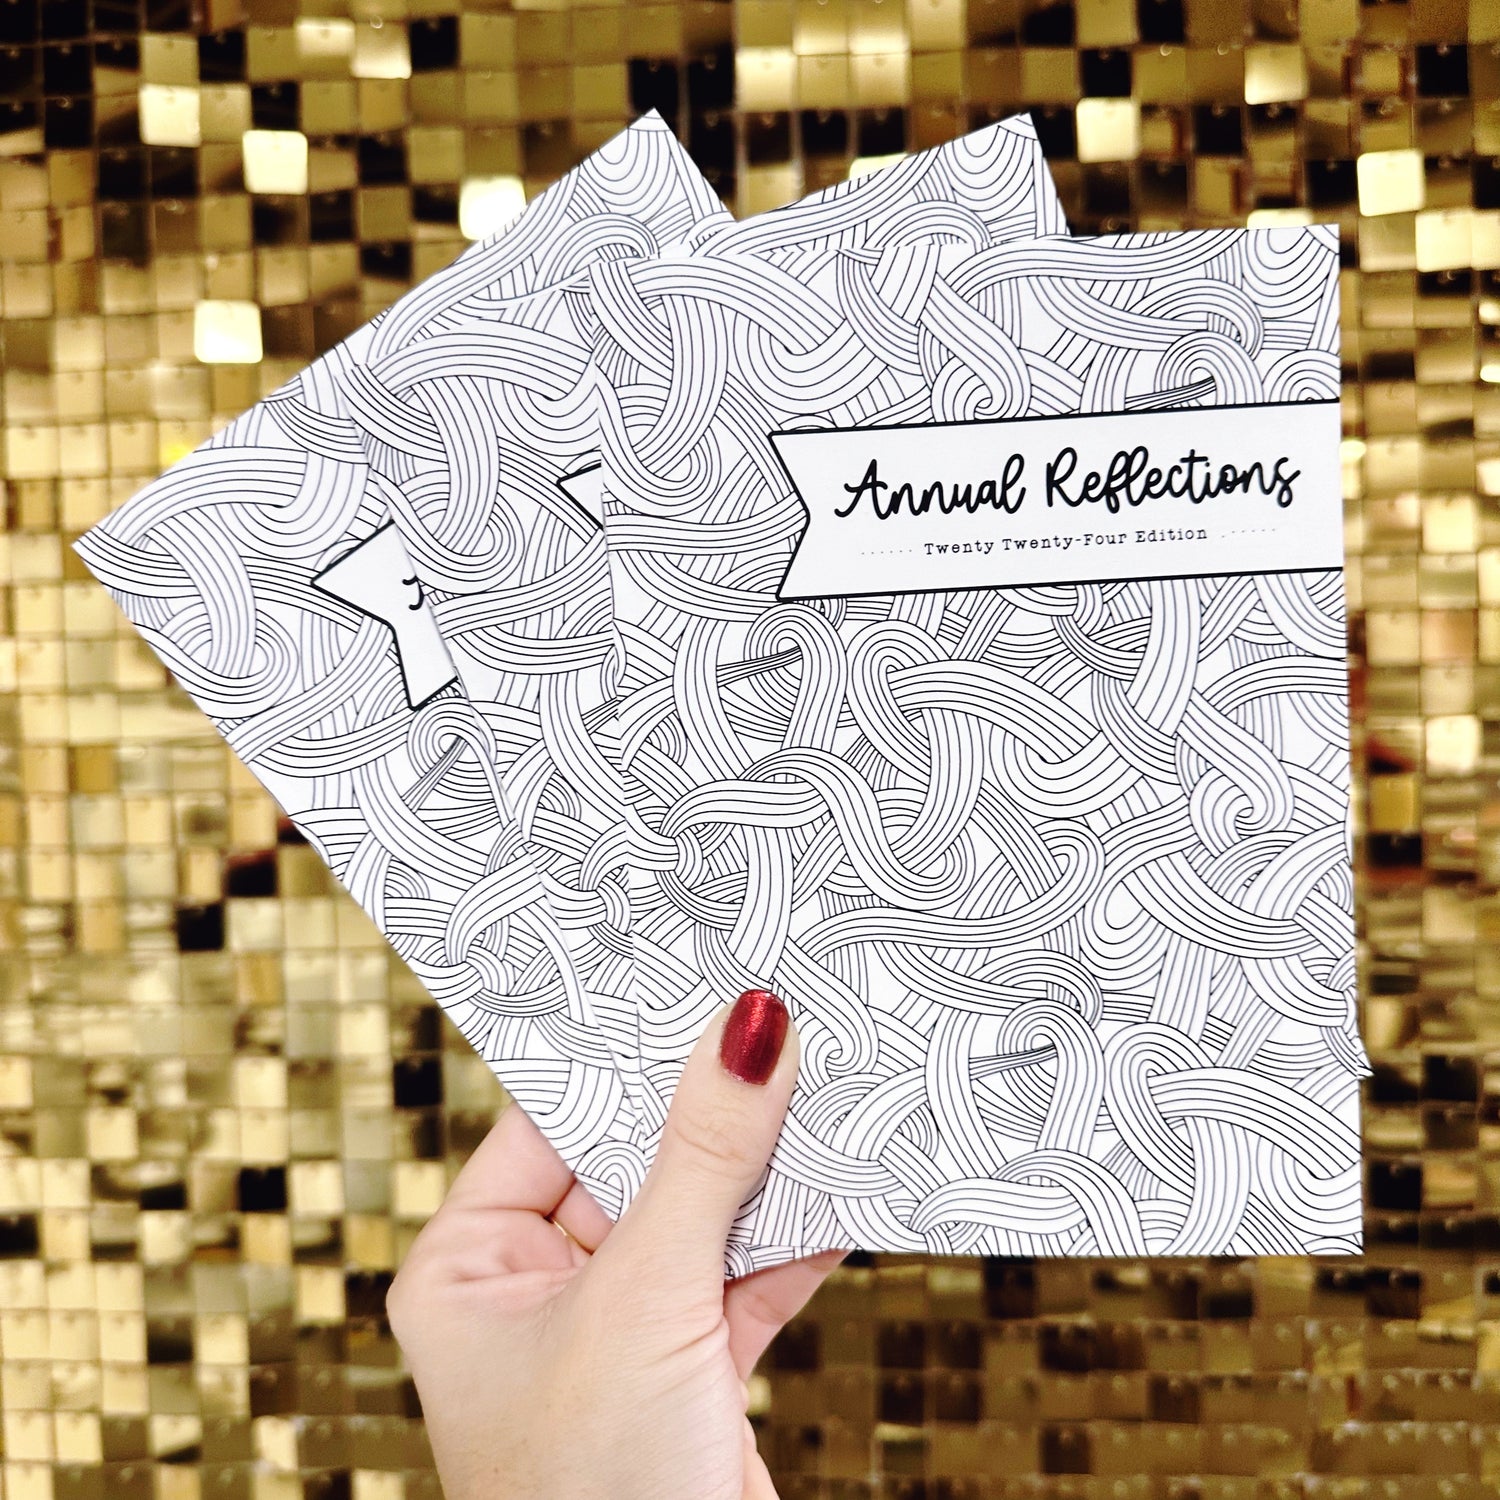 Annual Reflections
Twenty Twenty-Four Edition